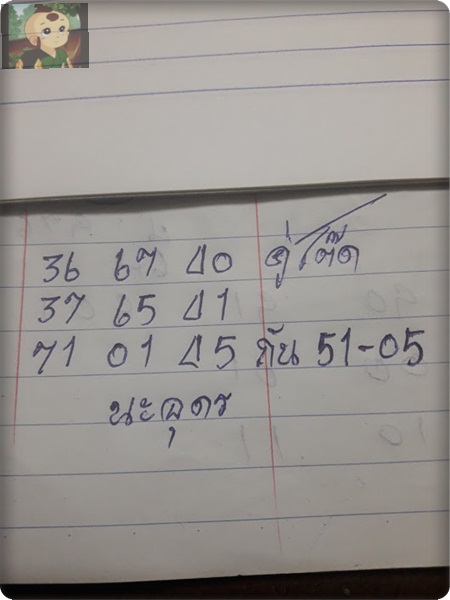 36 67 40 คู่โต๊ด
37 65 41
71 01 45 กัน 51-05
นะอุดร